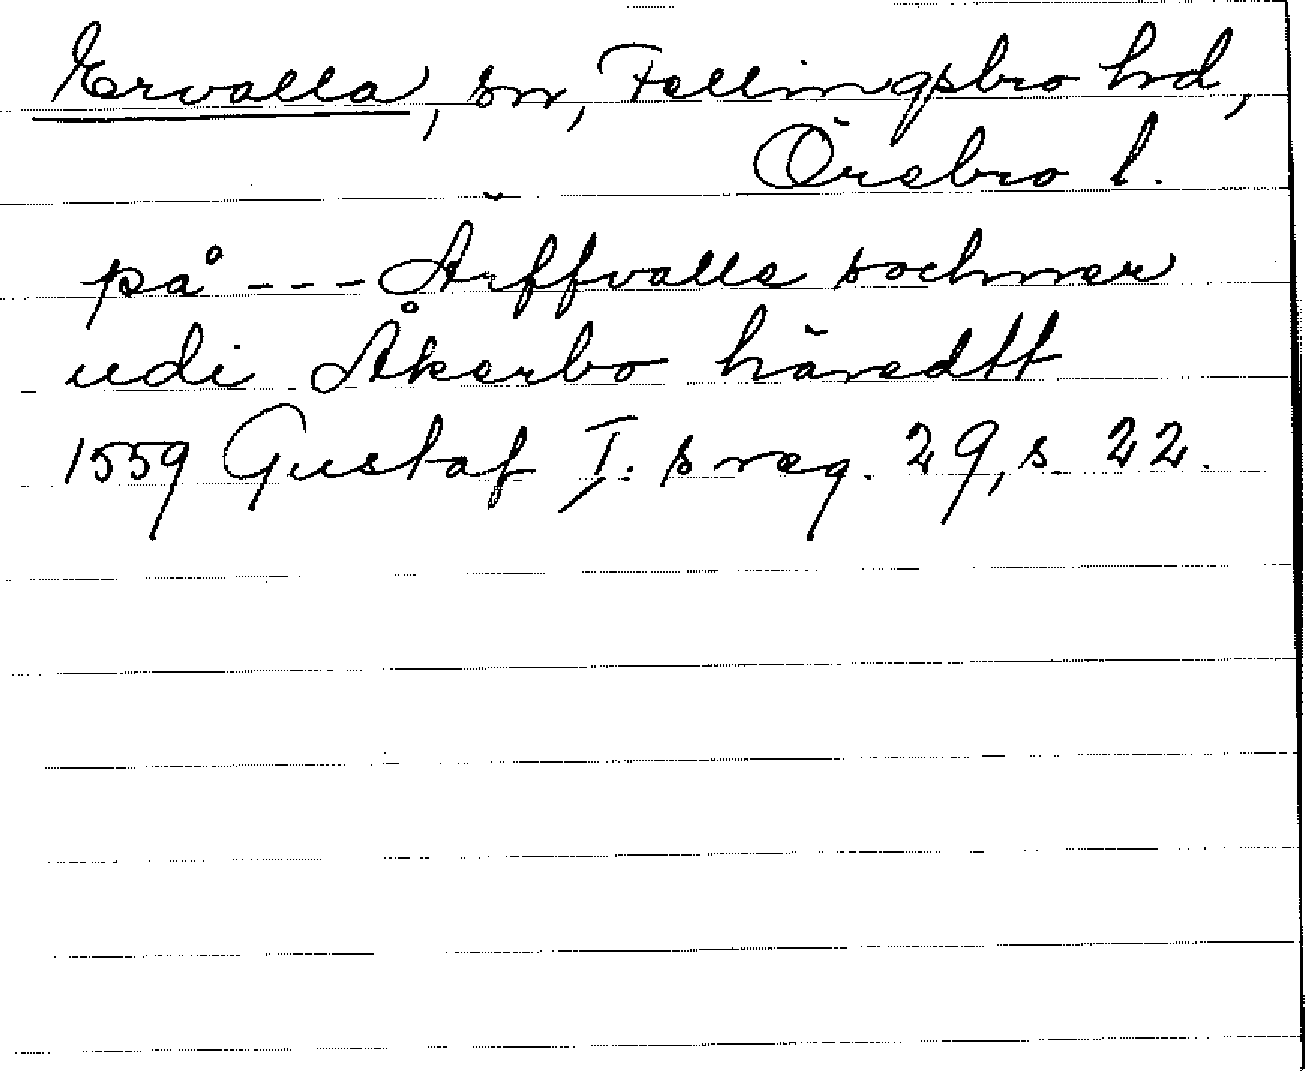 Ervalla, sn, Fellingsbro hd,
Örebro l.
på --- Ärffvalle sochner
udi Åkerbo häredtt
1559 Gustaf I:s reg. 29, s. 22.